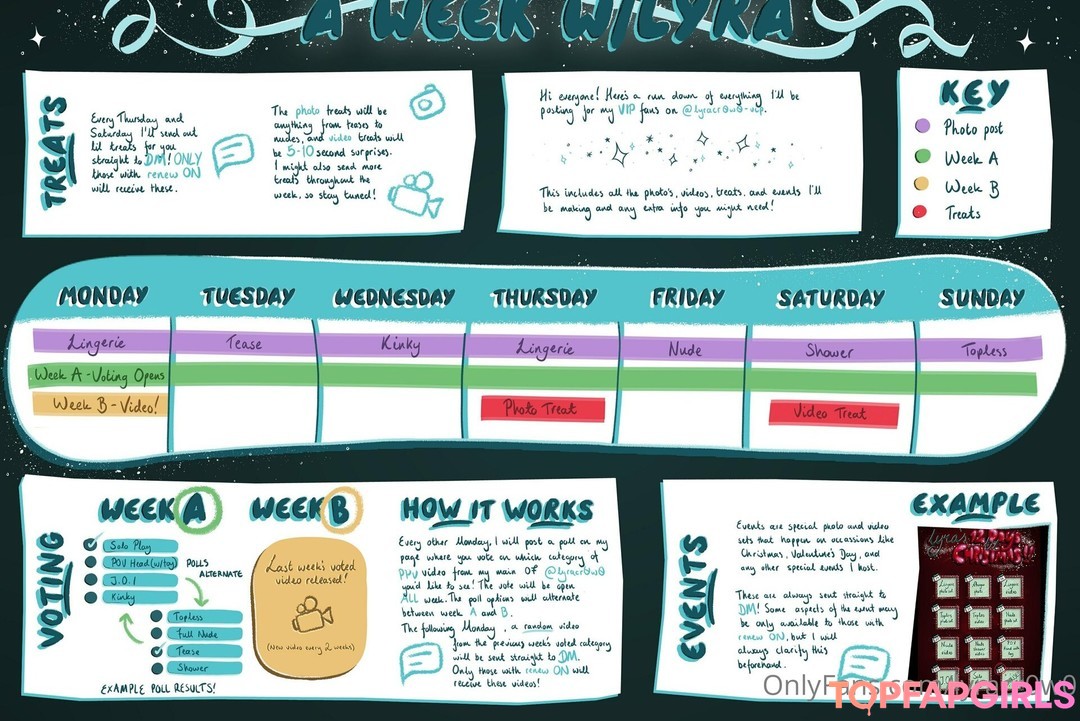 A WEEK W/LYRA
TREATS
Every Thursday and
Saturday I'll send out
lil treats for you
straight to DM! ONLY
those with renew ON
will receive these.
The photo treats will be
anything from teases to
nudes, and video treats will
be 5-10 second surprises.
I might also send more
treats throughout the
week, so stay tuned!
Hi everyone! Here's a run down of everything I'll be
posting for my VIP fans on @lyracr0w0-vip.
This includes all the photo's, videos, treats, and events I'll
be making and any extra info you might need!
KEY
Photo post
Week A
Week B
Treats
MONDAY TUESDAY WEDNESDAY THURSDAY FRIDAY SATURDAY SUNDAY
Lingerie Tease Kinky Lingerie Nude Shower Topless
Week A-Voting Opens
Week B-Video! Photo Treat Video Treat
VOTING
WEEK A
Solo Play
POV Head(w/toy)
J.O.I
Kinky
POLLS
ALTERNATE
Topless
Full Nude
Tease
Shower
EXAMPLE POLL RESULTS!
WEEK B
Last week's voted
video released!
(New video every 2 weeks)
HOW IT WORKS
Every other Monday, I will post a poll on my
page where you vote on which category of
PPV video from my main OF @lyracr0w0
you'd like to see! The vote will be open
ALL week. The poll options will alternate
between week A and B.
The following Monday, a random video
from the previous week's voted category
will be sent straight to DM.
Only those with renew ON will
receive these videos!
EVENTS
Events are special photo and video
sets that happen on occassions like
Christmas, Valentine's Day, and
any other special events I host.
These are always sent straight to
DM! Some aspects of the event may
be only available to those with
renew ON, but I will
always clarify this
beforehand.
EXAMPLE
TOPFAPGIRLS